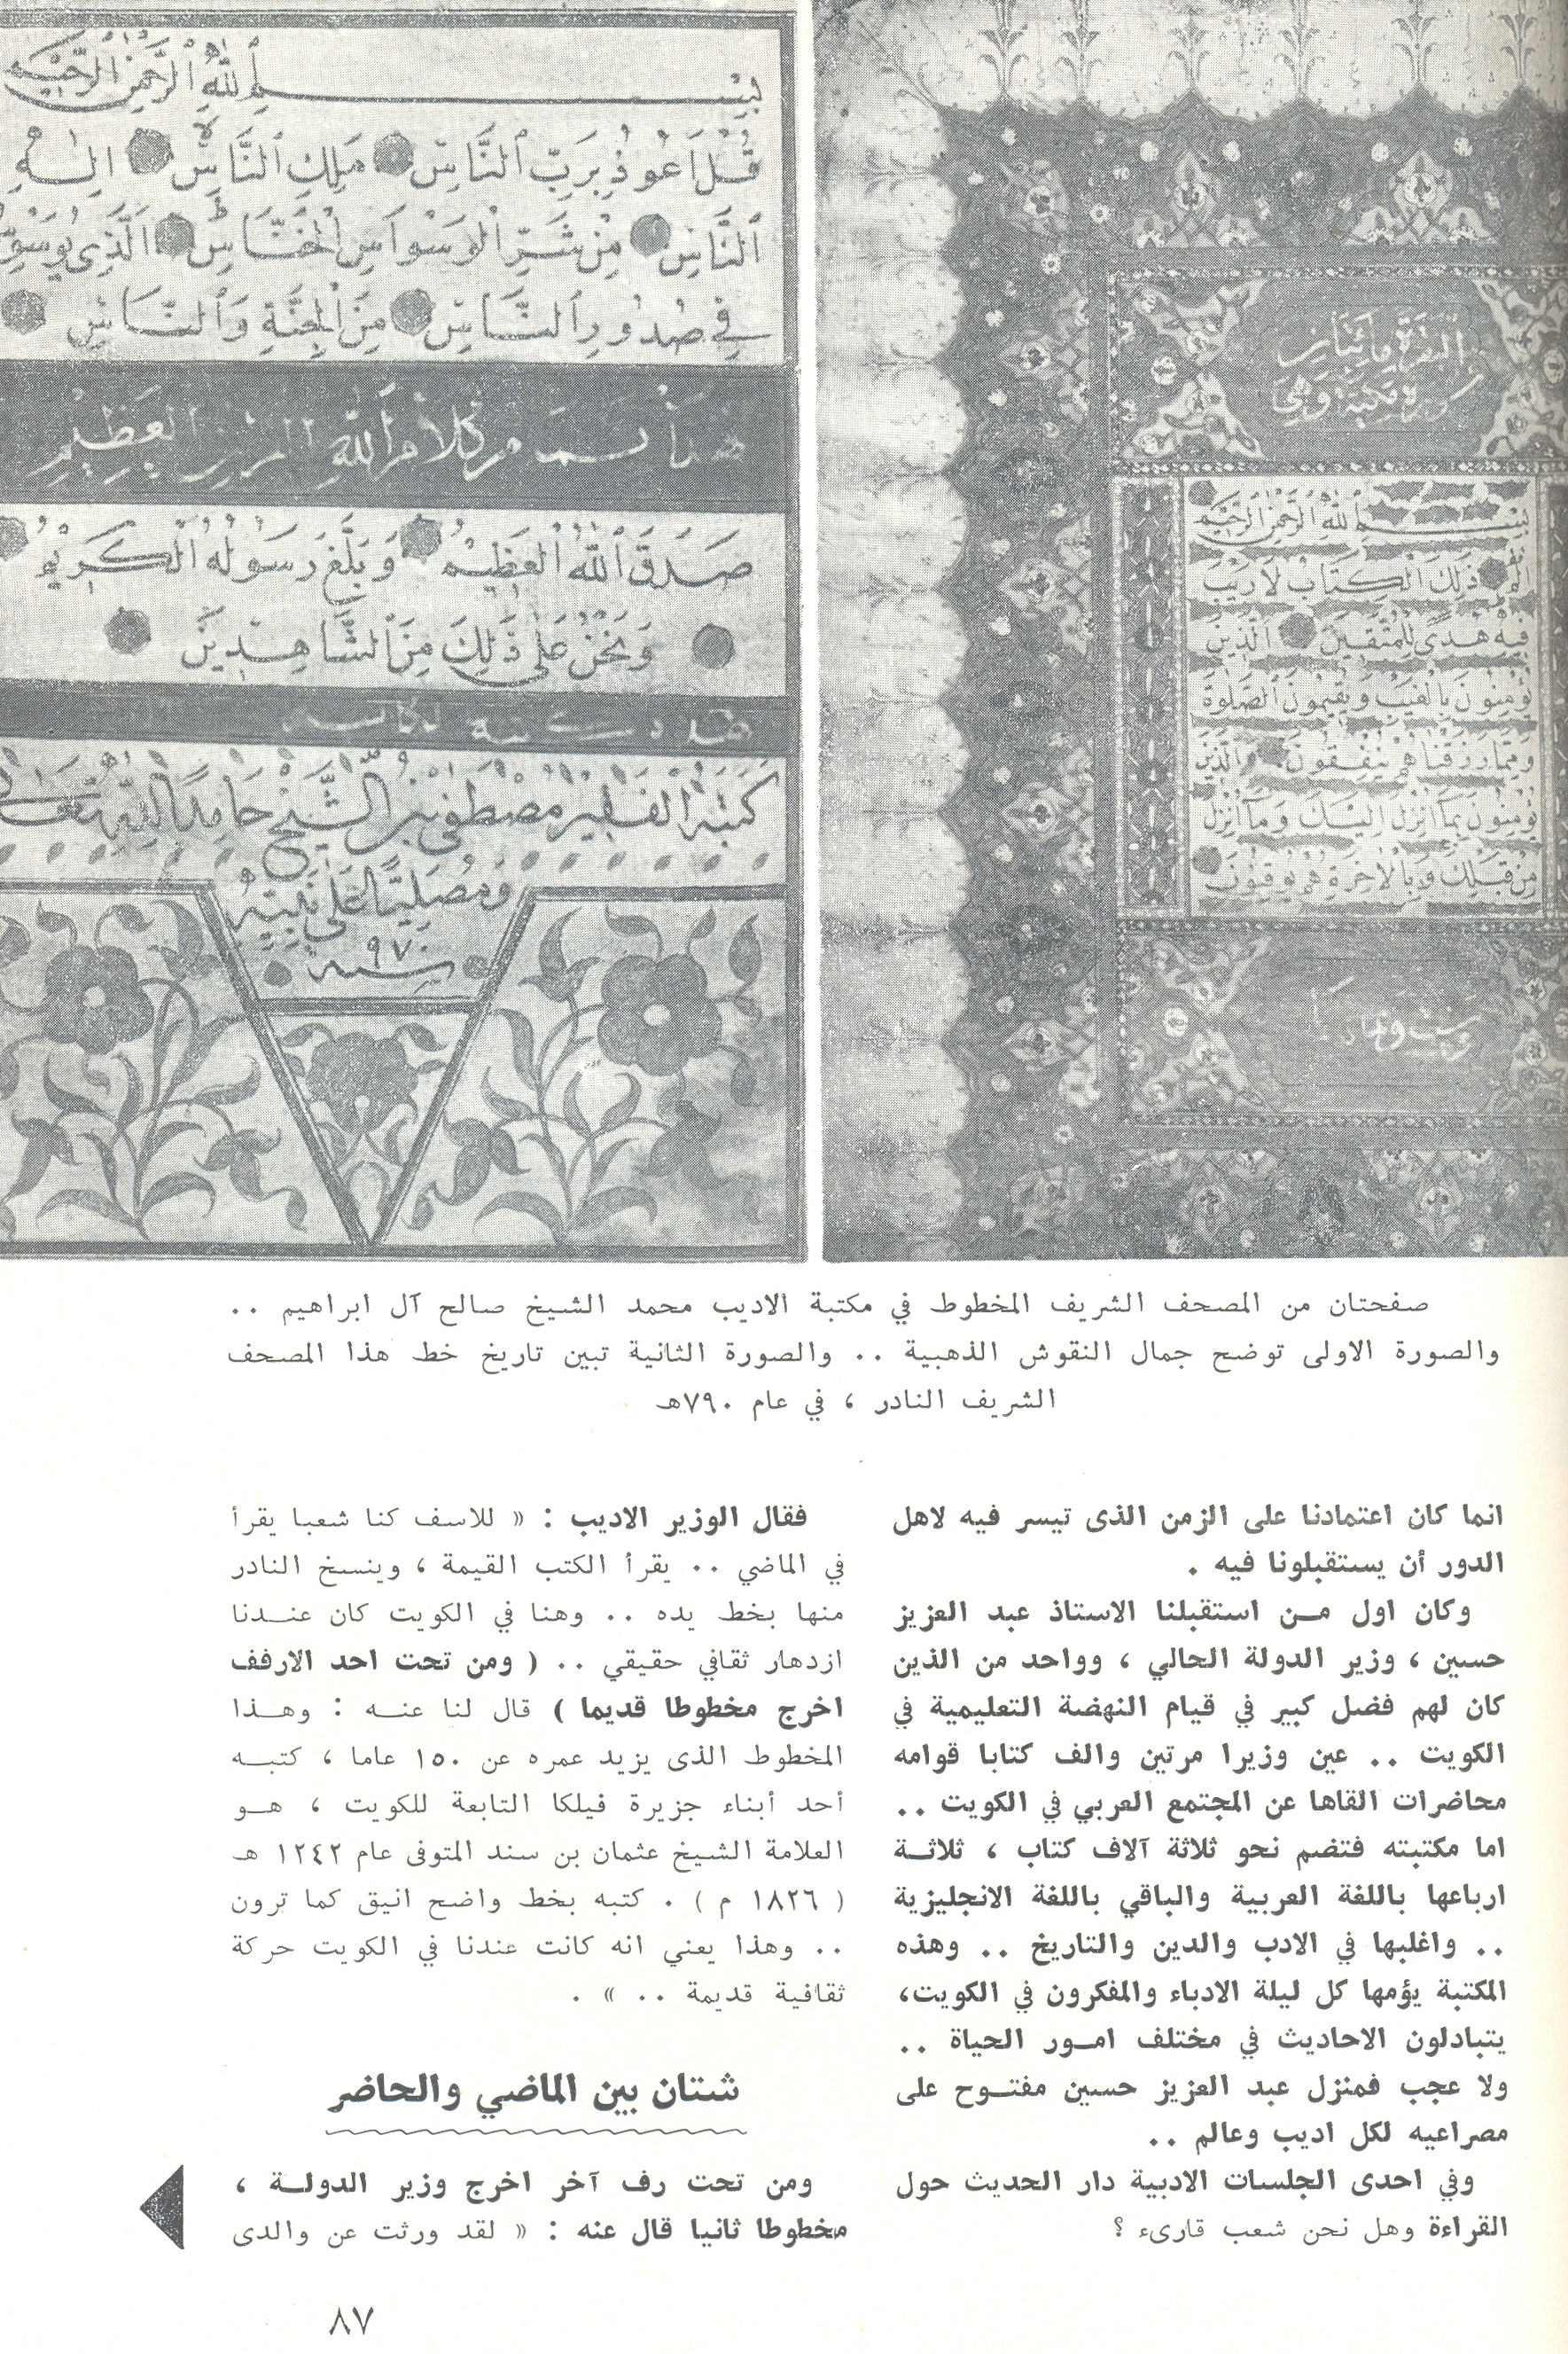 بِسْمِ اللهِ الرَّحْمٰنِ الرَّحِيْمِ
الم ذٰلِكَ الْكِتَابُ لَا رَيْبَ
فِيهِ هُدًى لِلْمُتَّقِينَ الَّذِينَ
يُؤْمِنُونَ بِالْغَيْبِ وَيُقِيمُونَ الصَّلٰوةَ
وَمِمَّا رَزَقْنَاهُمْ يُنْفِقُونَ وَالَّذِينَ
يُؤْمِنُونَ بِمَا أُنْزِلَ إِلَيْكَ وَمَا أُنْزِلَ
مِنْ قَبْلِكَ وَبِالْآخِرَةِ هُمْ يُوقِنُونَ
بِسْمِ اللهِ الرَّحْمٰنِ الرَّحِيْمِ
قُلْ اَعُوذُ بِرَبِّ النَّاسِ مَلِكِ النَّاسِ اِلٰهِ
النَّاسِ مِنْ شَرِّ الْوَسْوَاسِ الْخَنَّاسِ اَلَّذِي يُوَسْوِسُ
فِي صُدُورِ النَّاسِ مِنَ الْجِنَّةِ وَالنَّاسِ
كلام الله العظيم
صَدَقَ اللهُ الْعَظِيمُ وَبَلَّغَ رَسُولُهُ الْكَرِيمُ
وَنَحْنُ عَلَى ذَلِكَ مِنَ الشَّاهِدِينَ
كَتَبَهُ الْفَقِيرُ مُصْطَفَى بْنُ الشَّيْخِ حَامِدًا لِلّٰهِ تَعَالَى
وَمُصَلِّيًا عَلَى نَبِيِّهِ
سنة ٩٧٠
صفحتان من المصحف الشريف المخطوط في مكتبة الاديب محمد الشيخ صالح آل ابراهيم ..
والصورة الاولى توضح جمال النقوش الذهبية .. والصورة الثانية تبين تاريخ خط هذا المصحف
الشريف النادر ، في عام ٧٩٠هـ
انما كان اعتمادنا على الزمن الذى تيسر فيه لاهل
الدور أن يستقبلونا فيه .
وكان اول مـن استقبلنا الاستاذ عبد العزيز
حسين ، وزير الدولة الحالي ، وواحد من الذين
كان لهم فضل كبير في قيام النهضة التعليمية في
الكويت .. عين وزيرا مرتين والف كتابا قوامه
محاضرات القاها عن المجتمع العربي في الكويت ..
اما مكتبته فتضم نحو ثلاثة آلاف كتاب ، ثلاثـة
ارباعها باللغة العربية والباقي باللغة الانجليزية
.. واغلبها في الادب والدين والتاريخ .. وهذه
المكتبة يؤمها كل ليلة الادباء والمفكرون في الكويت،
يتبادلون الاحاديث في مختلف امـور الحياة ..
ولا عجب فمنزل عبد العزيز حسين مفتـوح على
مصراعيه لكل اديب وعالم ..
وفي احدى الجلسات الادبية دار الحديث حول
القراءة وهل نحن شعب قارىء ؟
فقال الوزير الاديب : « للاسف كنا شعبا يقرأ
في الماضي .. يقرأ الكتب القيمة ، وينسخ النادر
منها بخط يده .. وهنا في الكويت كان عنـدنا
ازدهار ثقافي حقيقي .. ( ومن تحت احد الارفف
اخرج مخطوطا قديما ) قال لنا عنـه : وهـذا
المخطوط الذى يزيد عمره عن ١٥٠ عاما ، كتبـه
أحد أبناء جزيرة فيلكا التابعة للكويت ، هـو
العلامة الشيخ عثمان بن سند المتوفى عام ١٢٤٢ هـ
( ١٨٢٦ م ) . كتبه بخط واضح انيق كما ترون
.. وهذا يعني انه كانت عندنا في الكويت حركة
ثقافية قديمة .. » .
شتان بين الماضي والحاضر
ومن تحت رف آخر اخرج وزير الدولـة ،
مخطوطا ثانيا قال عنه : « لقد ورثت عن والدى
٨٧